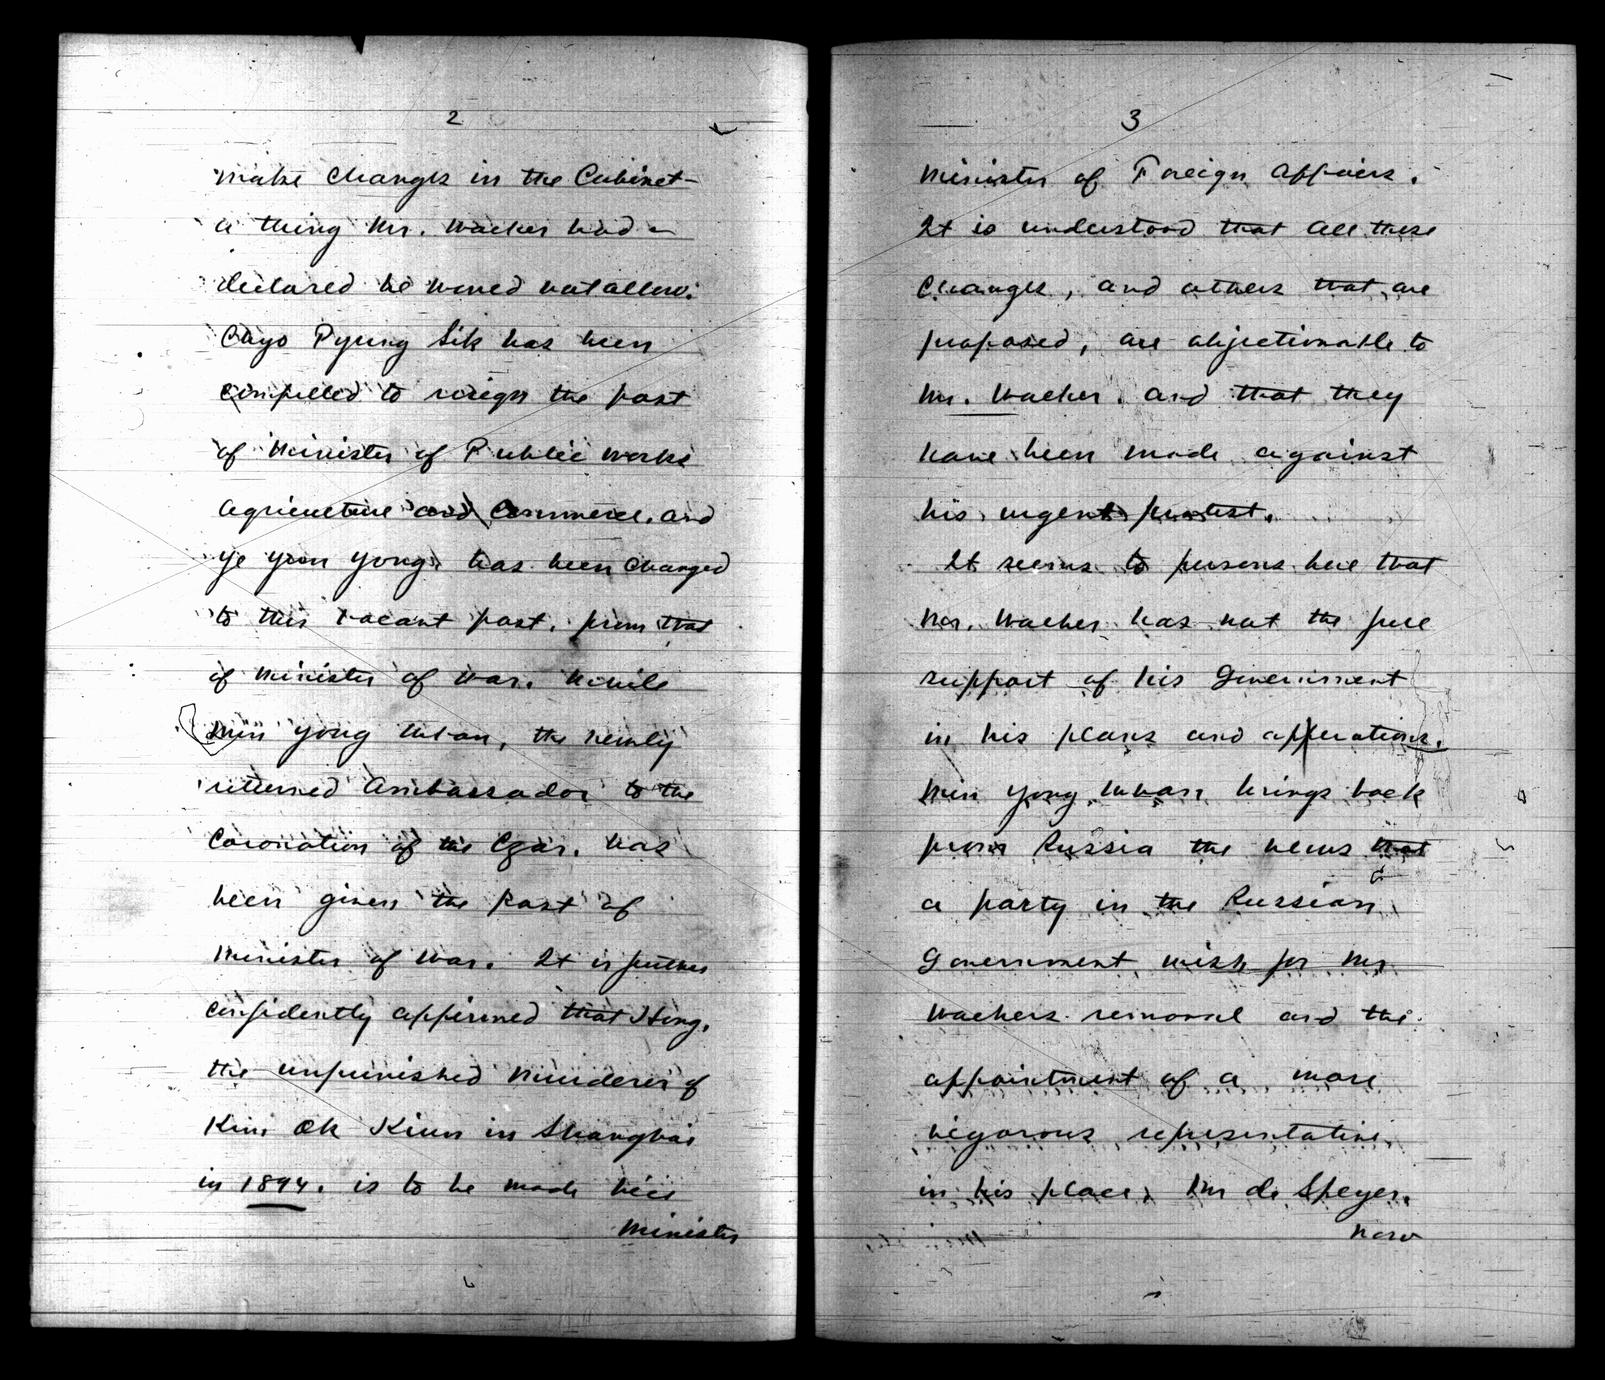 2
make changes in the Cabinet -
a thing Mr. Waeber had
declared he would not allow.
Chyo Pyung Sik has been
compelled to resign the post
of Minister of Public works
Agriculture and Commerce, and
Ye Yun Yong, has been changed
to this vacant post, from that
of Minister of War. While
Min Yong Whan, the newly
returned Ambassador to the
Coronation of the Czar, has
been given the post of
Minister of War. It is further
confidently affirmed that Hong,
the unpunished murderer of
Kim Ok Kiun in Shanghai
in 1894. is to be made vice
Minister
3
Minister of Foreign Affairs.
It is understood that all these
changes, and others that are
proposed, are objectionable to
Mr. Waeber. and that they
have been made against
his urgent protest.
It seems to persons here that
Mr. Waeber has not the full
support of his Government
in his plans and opperations.
Min Yong Whan brings back
from Russia the news that
a party in the Russian
Government wish for Mr
Waebers removal and the
appointment of a more
vigorous representative
in his place, Mr de Speyer.
now